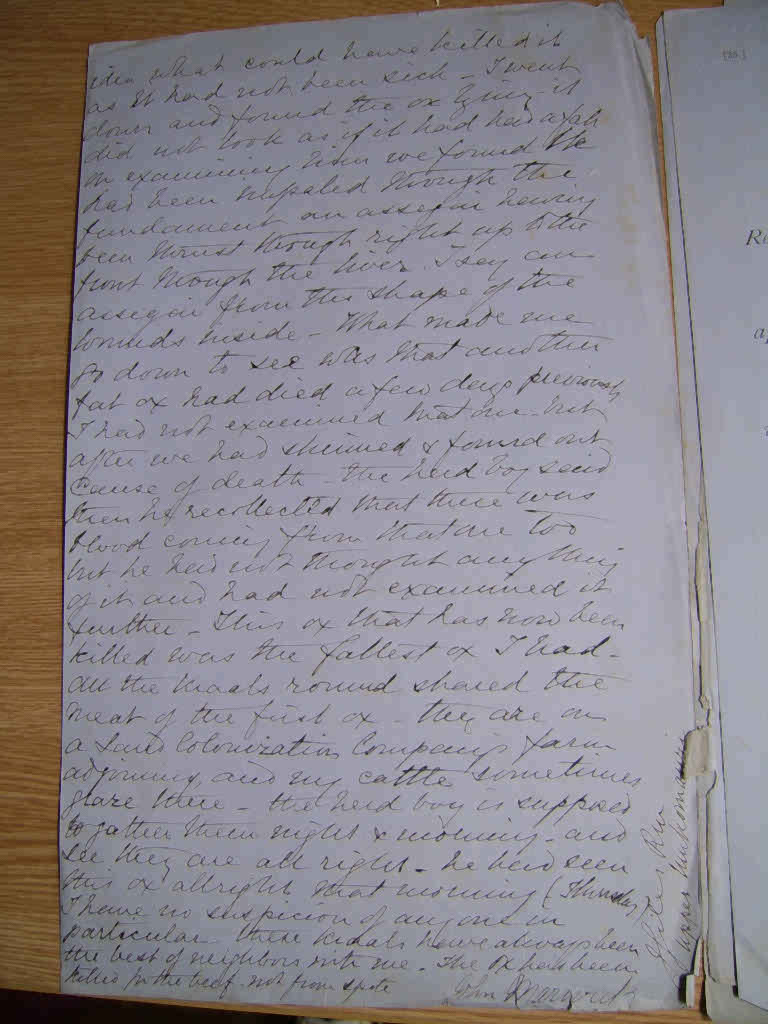 idea what could have killed it
as it had not been sick – I went
down and found the ox lying – it
did not look as if it had had a fall
on examining him we found he
had been impaled through the
fundament an assegai having
been thrust through right up to the
front through the liver. I say an
assegai from the shape of the
wounds inside – What made me
go down to see was that another
fat ox had died a few days previously
I had not examined that one – but
after we had skinned & found out
cause of death – the herd boy said
then he recollected that there was
blood coming from that one too
but he had not thought anything
of it and had not examined it
further – This ox that has now been
killed was the fattest ox I had –
All the kraals round shared the
meat of the first ox – they are on
a Land Colonization Company's farm
adjoining, and my cattle sometimes
graze there – the herd boy is supposed
to gather them night & morning – and
see they are all right – he had seen
this ox allright that morning (Thursday)
I have no suspicion of anyone in
particular – these kraals have always been
the best of neighbors with me – The ox has been
killed for the beef not from spite
John
Upper
[25.]